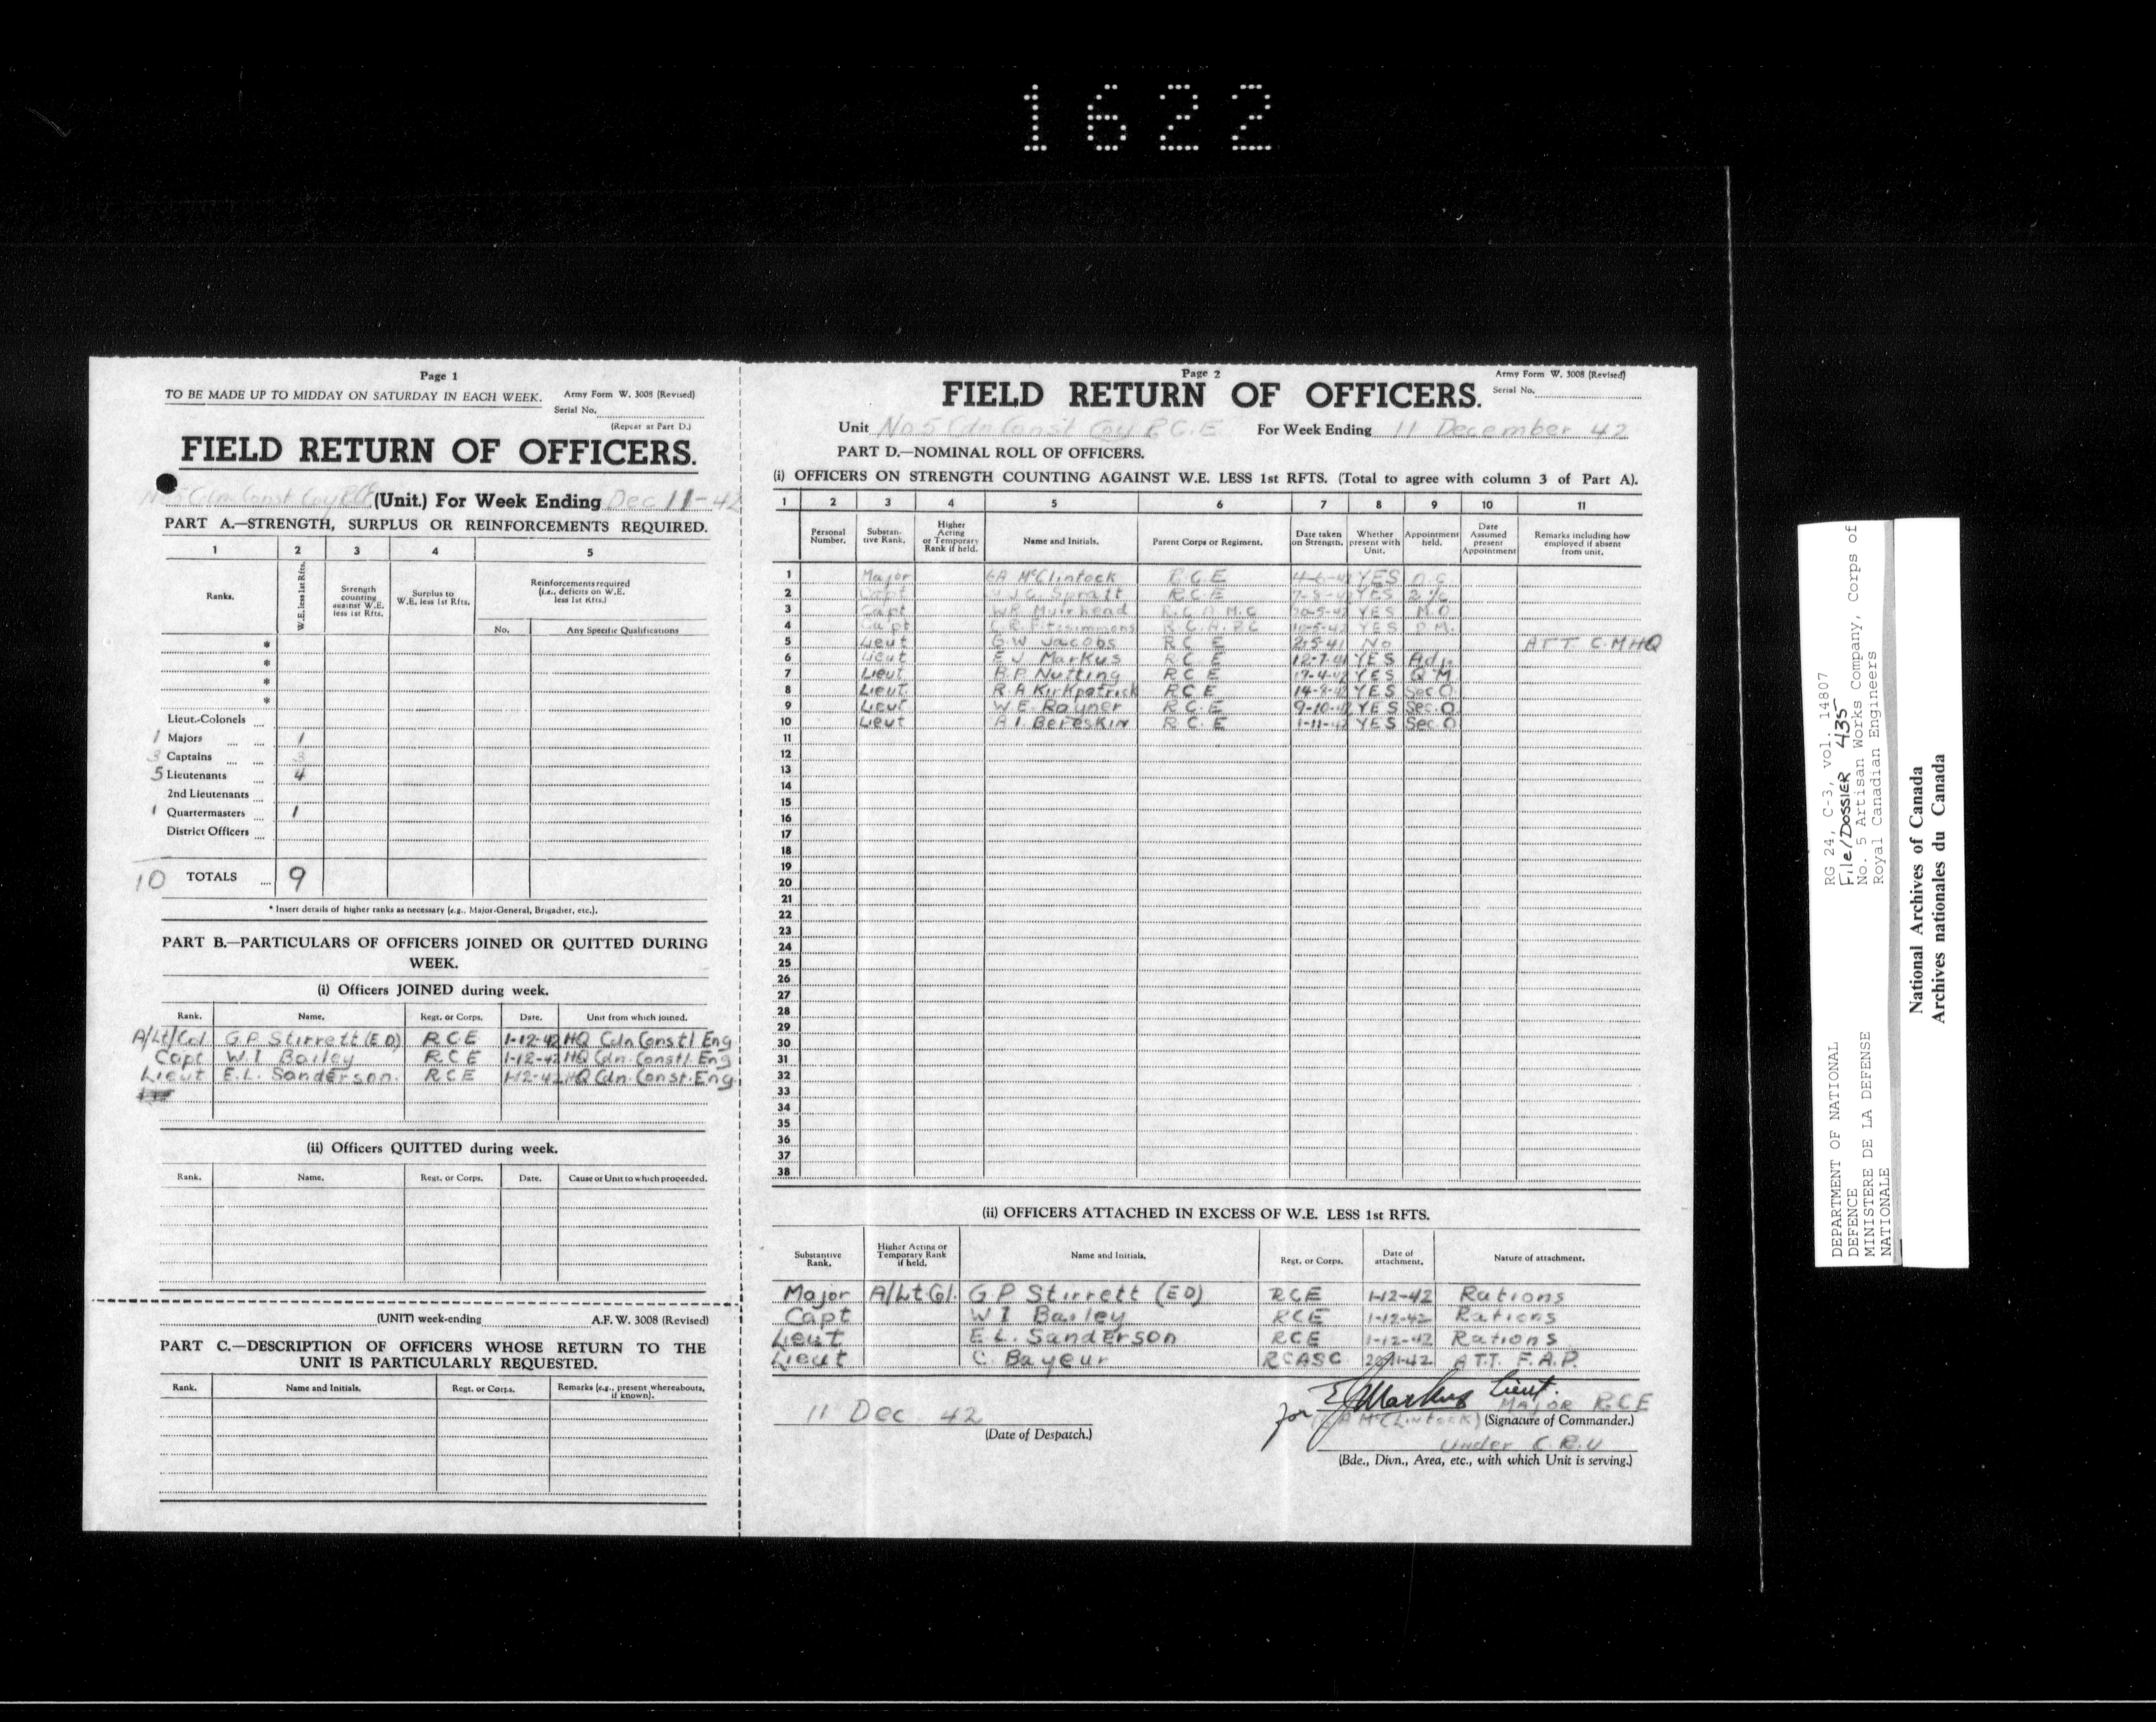 1622
Page 1
TO BE MADE UP TO MIDDAY ON SATURDAY IN EACH WEEK.
Army Form W. 3008 (Revised)
Serial No.
(Repeat at Part D.)
FIELD RETURN OF OFFICERS.
No 5 Cdn Const Coy RCE (Unit.) For Week Ending Dec 11-42
PART A.—STRENGTH, SURPLUS OR REINFORCEMENTS REQUIRED.
1 2 3 4 5
Ranks.
W.E. less 1st Rfts.
Strength counting against W.E. less 1st Rfts.
Surplus to W.E. less 1st Rfts.
Reinforcements required (i.e., deficits on W.E. less 1st Rfts.)
No. Any Specific Qualifications
*
*
*
*
Lieut.-Colonels
1 Majors 1
3 Captains 3
5 Lieutenants 4
2nd Lieutenants
1 Quartermasters 1
District Officers
10 TOTALS 9
* Insert details of higher ranks as necessary (e.g., Major-General, Brigadier, etc.).
PART B.—PARTICULARS OF OFFICERS JOINED OR QUITTED DURING
WEEK.
(i) Officers JOINED during week.
Rank. Name. Regt. or Corps. Date. Unit from which joined.
A/Lt/Col G P Stirrett (ED) RCE 1-12-42 HQ Cdn Constl Eng
Capt W I Bailey RCE 1-12-42 HQ Cdn. Constl. Eng
Lieut E.L. Sanderson. RCE 1-12-42 HQ Cdn. Const. Eng
(ii) Officers QUITTED during week.
Rank. Name. Regt. or Corps. Date. Cause or Unit to which proceeded.
(UNIT) week-ending A.F.W. 3008 (Revised)
PART C.—DESCRIPTION OF OFFICERS WHOSE RETURN TO THE
UNIT IS PARTICULARLY REQUESTED.
Rank. Name and Initials. Regt. or Corps. Remarks (e.g., present whereabouts, if known).
Page 2
Army Form W. 3008 (Revised)
FIELD RETURN OF OFFICERS.
Serial No.
Unit No 5 Cdn Const Coy R.C.E For Week Ending 11 December 42
PART D.—NOMINAL ROLL OF OFFICERS.
(i) OFFICERS ON STRENGTH COUNTING AGAINST W.E. LESS 1st RFTS. (Total to agree with column 3 of Part A).
1 2 3 4 5 6 7 8 9 10 11
Personal Number.
Substantive Rank.
Higher Acting or Temporary Rank if held.
Name and Initials.
Parent Corps or Regiment.
Date taken on Strength.
Whether present with Unit.
Appointment held.
Date Assumed present Appointment
Remarks including how employed if absent from unit.
1 Major GA McClintock R.C.E 4-6-42 YES O.C.
2 Capt J.C. Spratt R.C.E YES 2 i/c
3 Capt W.R. Muirhead R.C.A.M.C 20-5-42 YES M.O
4 Capt Fitzsimmons R.C.A.P.C YES P.M.
5 Lieut G.W. Jacobs R C E 2-5-41 No ATT C.M.H.Q
6 Lieut E J. Markus R C E 12-7-41 YES Adj.
7 Lieut Nutting R C E 17-4-42 YES Q M.
8 Lieut R. A Kirkpatrick R C E YES Sec O.
9 Lieut W.E. Rayner R.C.E 9-10-42 YES Sec. O.
10 Lieut A I. Bereskin R.C.E 1-11-42 YES Sec. O
11
12
13
14
15
16
17
18
19
20
21
22
23
24
25
26
27
28
29
30
31
32
33
34
35
36
37
38
(ii) OFFICERS ATTACHED IN EXCESS OF W.E. LESS 1st RFTS.
Substantive Rank.
Higher Acting or Temporary Rank if held.
Name and Initials.
Regt. or Corps.
Date of attachment.
Nature of attachment.
Major A/Lt Col. G P Stirrett (ED) RCE 1-12-42 Rations
Capt W I Bailey RCE 1-12-42 Rations
Lieut E L. Sanderson RCE 1-12-42 Rations
Lieut C. Bayeur RCASC 20-11-42 ATT. F.A.P.
E J Markus Lieut.
11 Dec 42
for (GA McClintock) MAJOR RCE
(Signature of Commander.)
(Date of Despatch.)
Under C.R.U
(Bde., Divn., Area, etc., with which Unit is serving.)
DEPARTMENT OF NATIONAL
DEFENCE
MINISTERE DE LA DEFENSE
NATIONALE
RG 24, C-3, vol. 14807
File/DOSSIER 435
No. 5 Artisan Works Company, Corps of
Royal Canadian Engineers
National Archives of Canada
Archives nationales du Canada